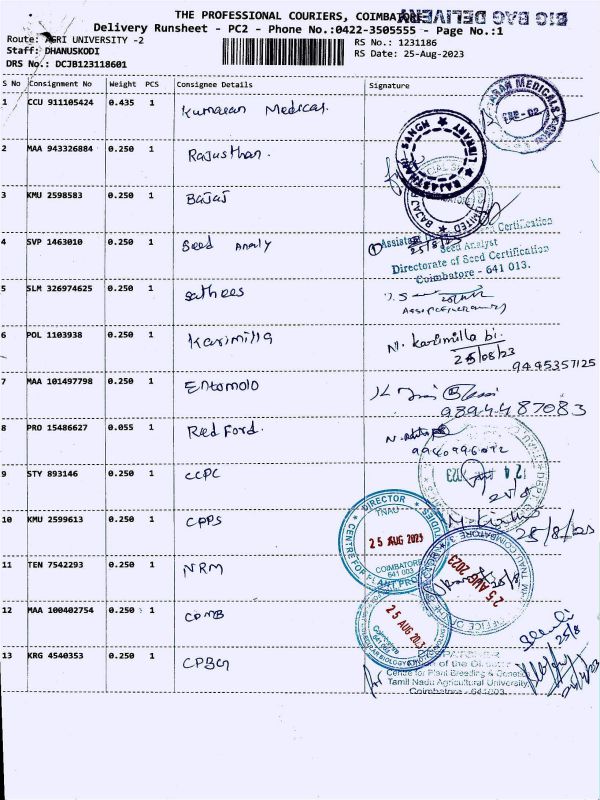 THE PROFESSIONAL COURIERS, COIMBATORE
BIG BAG DELIVERY
Delivery Runsheet - PC2 - Phone No.:0422-3505555 - Page No.:1
Route: AGRI UNIVERSITY -2
RS No.: 1231186
Staff: DHANUSKODI
RS Date: 25-Aug-2023
DRS No.: DCJB123118601
S No Consignment No Weight PCS Consignee Details Signature
1 CCU 911105424 0.435 1 Kumaran Medical
MEDICALS
2 MAA 943326884 0.250 1 Rajasthan.
RAJASTHANI SANGH
3 KMU 2598583 0.250 1 Bajaj
BAJAJ LIMITED
4 SVP 1463010 0.250 1 Seed Analy
25/8/23
Seed Analyst
Directorate of Seed Certification
Coimbatore - 641 013.
5 SLM 326974625 0.250 1 sathees
6 POL 1103938 0.250 1 Karimilla
N. Karimilla bi.
25/08/23
9495357125
7 MAA 101497798 0.250 1 Entomolo
9894487083
8 PRO 15486627 0.055 1 Red Ford.
9940996072
9 STY 893146 0.250 1 CCPC
10 KMU 2599613 0.250 1 CPPS
DIRECTOR
TNAU
25 AUG 2023
COIMBATORE
641 003
CENTRE FOR PLANT PROTECTION STUDIES
25/8/23
11 TEN 7542293 0.250 1 NRM
25 AUG 2023
12 MAA 100402754 0.250 1 CPMB
25 AUG 2023
25/8
13 KRG 4540353 0.250 1 CPBG
Centre for Plant Breeding & Genetics
Tamil Nadu Agricultural University,
Coimbatore - 641003